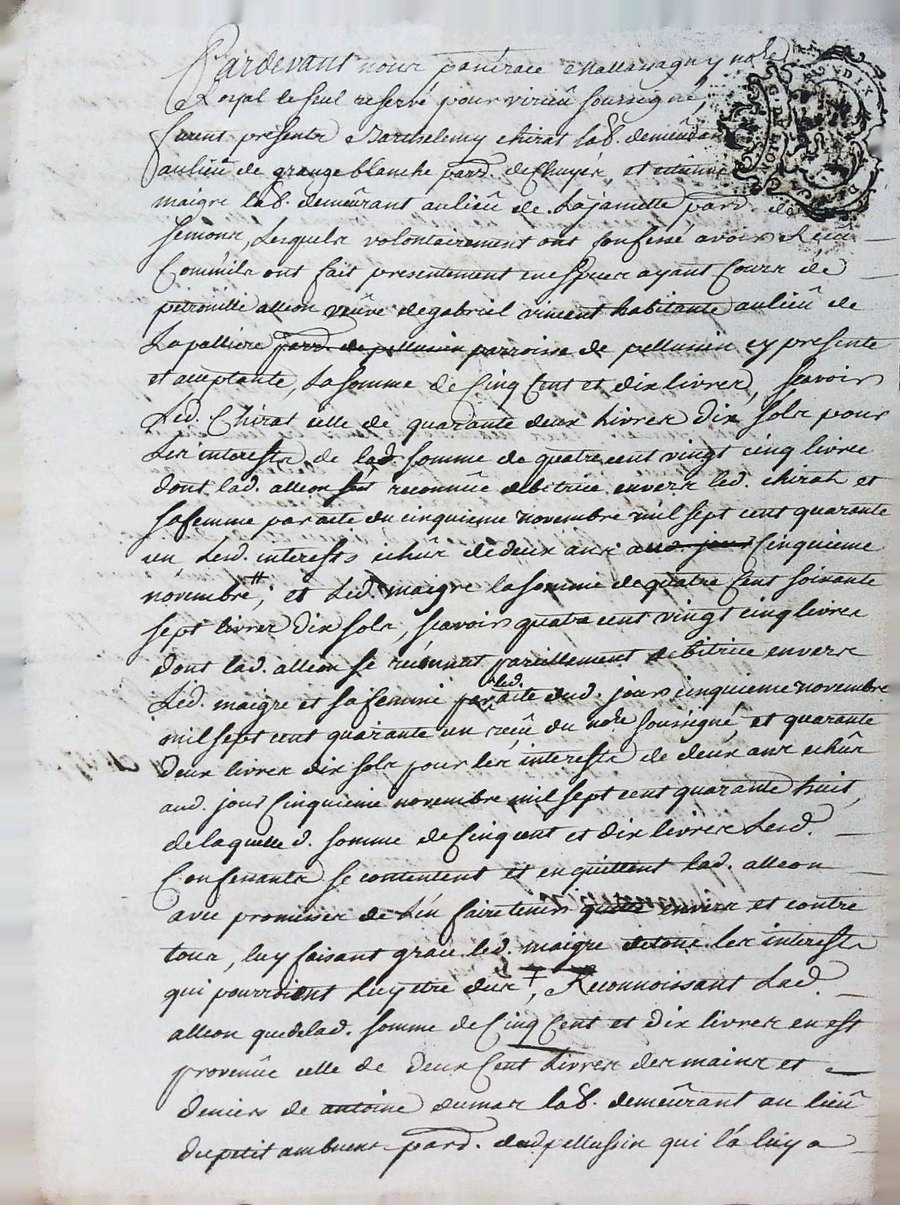 Pardevant nous pancrace mallassagny no.re
Royal le seul reservé pour virieû soussigné,
furent presents Barthelemy chirat lab. demeûrant
au lieû de grange blanche parr. de Chuyér, et etienne
maigre lab. demeûrant au lieû de La jamille parr. de
semons, Lesquels volontairement ont confessé avoir Reçû
Comm'ils ont fait presentement en espéces ayant cours de
petronille alleon veûve de gabriel vincent habitante au lieû de
La palliere parr. de pellussin parroisse de pellussin cy presente
et acceptante, La somme de Cinq Cent et dix livres, scavoir
Led. Chirat celle de quarante deux livres dix sols pour
Les interests de lad. somme de quatre cent vingt cinq livres
dont lad. alleon s'est reconnûe debitrice envers led. chirat et
sa femme par acte du cinquieme novembre mil sept cent quarante
un Lesd. interests echûs de deux ans aud. jour Cinquieme
novembre; et Led. maigre la somme de quatre Cent soixante
sept livres dix sols, scavoir quatre cent vingt cinq livres
dont lad. alleon se reconnut pareillement debitrice envers
Led. maigre et sa femme par led. acte dud. jour cinquieme novembre
mil sept cent quarante un reçû du no.re soussigné, et quarante
deux livres dix sols pour les interests de deux ans echûs
aud. jour Cinquieme novembre mil sept cent quarante huit,
de laquelle d. somme de Cinq cent et dix livres Lesd.
Confessants se contentent et en quittent lad. alleon
avec promesse de L'en faire tenir quitte envers et contre
tous, luy faisant grace led. maigre de tous les interests
qui pourroient luy être dus, Reconnoissant Lad.
alleon que de lad. somme de Cinq Cent et dix livres en est
provenûe celle de deux Cent Livres des mains et
deniers de antoine dumas lab. demeûrant au lieû
du petit ambuent parr. dud. pellussin qui l'a luy a